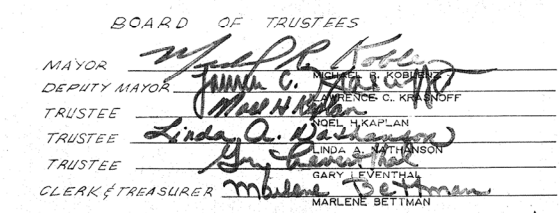 BOARD OF TRUSTEES
MAYOR Michael R. Koblenz
MICHAEL R. KOBLENZ
DEPUTY MAYOR C. Krasnoff
LAWRENCE C. KRASNOFF
TRUSTEE Noel H Kaplan
NOEL H.KAPLAN
TRUSTEE Linda A. Nathanson
LINDA A. NATHANSON
TRUSTEE Gary Leventhal
GARY LEVENTHAL
CLERK & TREASURER Marlene Bettman
MARLENE BETTMAN